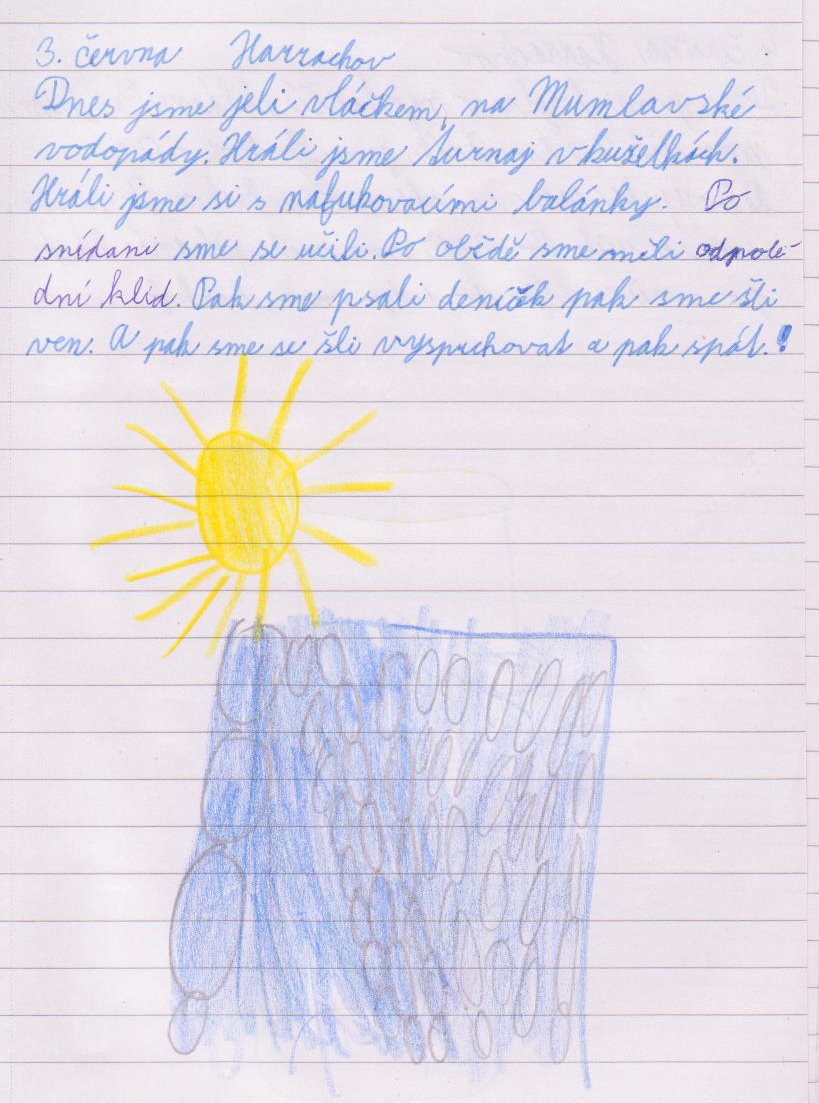 3. června Harrachov
Dnes jsme jeli vláčkem, na Mumlavské
vodopády. Hráli jsme turnaj v kuželkách.
Hráli jsme si s nafukovacími balánky. Po
snídani sme se učili. Po obědě sme měli odpole-
dní klid. Pak sme psali deníček pak sme šli
ven. A pak sme se šli vysprchovat a pak spát.!